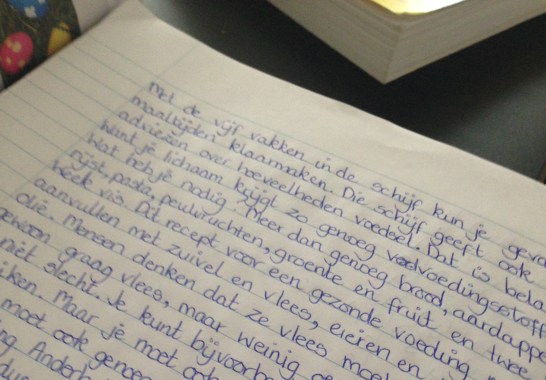 Met de vijf vakken in de schijf kun je geva
maaltijden klaarmaken. Die schijf geeft ook
adviezen over hoeveelheden voedsel. Dat is bela
Want je lichaam krijgt zo genoeg voedvoedingsstoff
Wat heb je nodig? Meer dan genoeg brood, aardappe
rijst, pasta, peulvruchten, groente en fruit en twee
keer vis. Dit recept voor een gezonde voeding
aanvullen met zuivel en vlees, eieren en
olie. Mensen denken dat ze vlees moe
gewoon graag vlees, maar weinig
niet slecht. Je kunt bijvoorbe
iken. Maar je moet ook
moet ook genoe
ng. Anderh